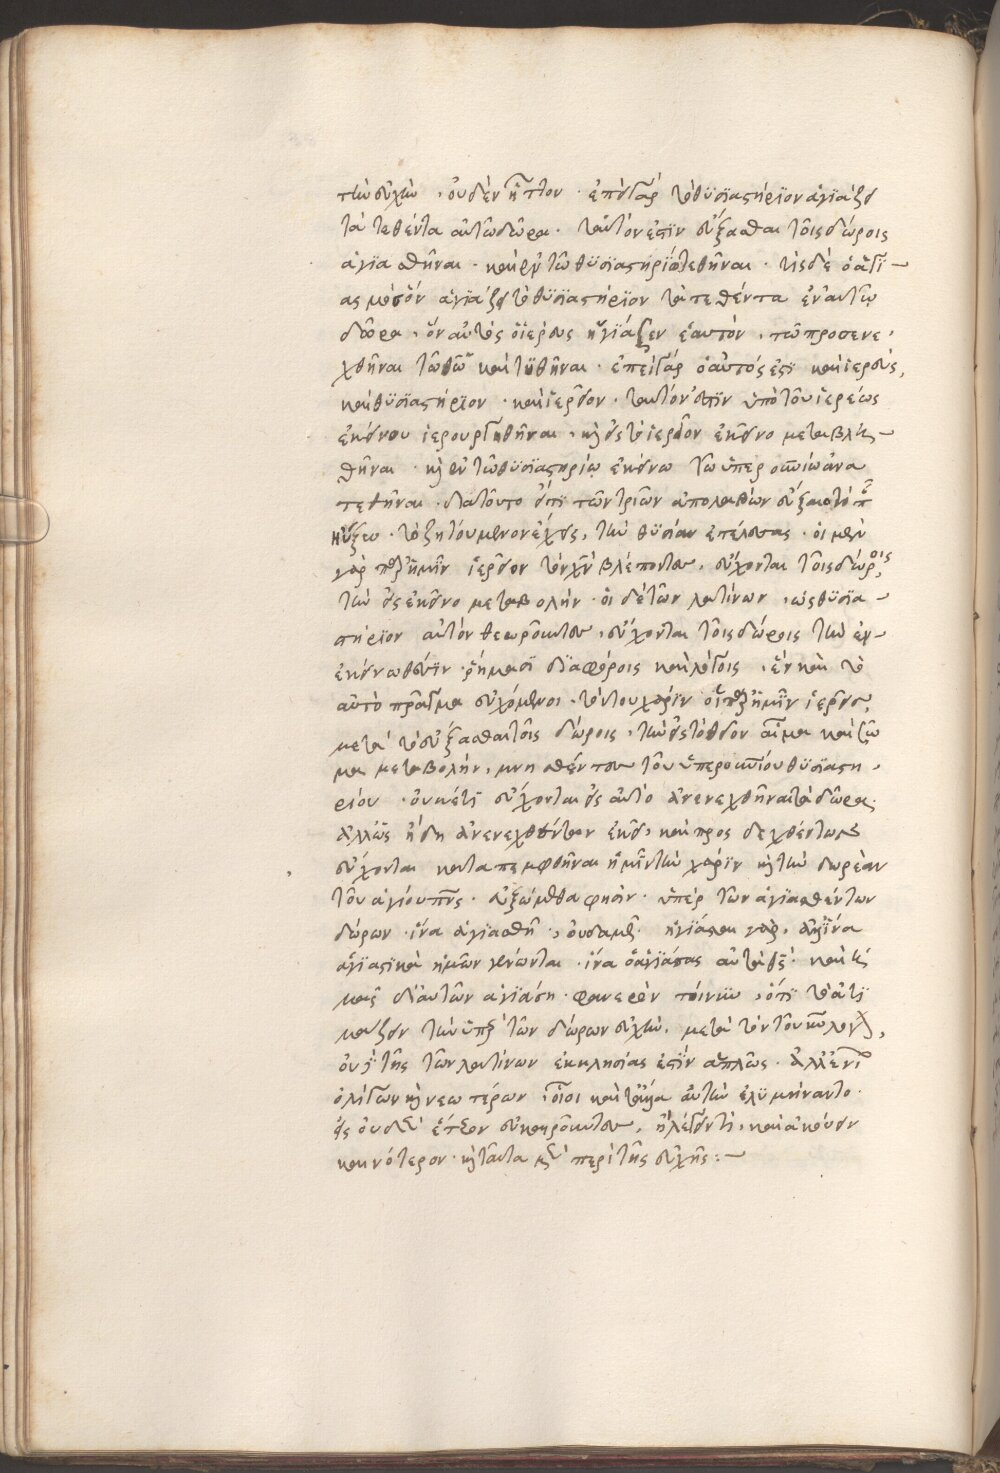 τὴν εὐχὴν · οὐδὲν ἧττον · ἐπεὶ γὰρ τὸ θυσιαστήριον ἁγιάζει
τὰ τεθέντα αὐτῷ δῶρα · ταυτόν ἐστιν εὔξασθαι τοῖς δώροις
ἁγιασθῆναι · καὶ ἐν τῷ θυσιαστηρίῳ τεθῆναι · τίς δὲ ὁ ἁγι-
ασμὸς ὃν ἁγιάζει τὸ θυσιαστήριον τὰ τεθέντα ἐν αὐτῷ
δῶρα · ὃν αὐτὸς ὁ ἱερεὺς ἡγίασεν ἑαυτὸν · τῷ προσενε-
χθῆναι τῷ θῶ καὶ τυθῆναι · ἐπεὶ γὰρ ὁ αὐτός ἐστι καὶ ἱερεὺς,
καὶ θυσιαστήριον · καὶ ἱερεῖον · ταυτόν ἐστιν ὑπὸ τοῦ ἱερέως
ἐκείνου ἱερουργηθῆναι · κ εἰς τὸ ἱερεῖον ἐκεῖνο μεταβλη-
θῆναι · κ ἐν τῷ θυσιαστηρίῳ ἐκείνω τῶ ὑπερουρανίω ἀνα
τεθῆναι · διὰ τοῦτο ὅ τι τῶν τριῶν ἀπολαβὼν εὔξαιο τὸ π
ηὔξω · τὸ ζητούμενον ἔχεις, τὴν θυσίαν ἐτέλεσας · οἱ μὲν
γὰρ παρ ἡμῖν ἱερεῖς τὸν χν βλέποντες, εὔχονται τοῖς δώροις
τὴν εἰς ἐκεῖνο μεταβολήν · οἱ δὲ τῶν λατίνων · ὡς θυσια-
στήριον αὐτὸν θεωροῦντες, εὔχονται τοῖς δώροις τὴν ἐν
ἐκείνω θέσιν · ῥήμασι διαφόροις καὶ λόγοις · ἓν καὶ τὸ
αὐτὸ πρᾶγμα εὐχόμενοι · τούτου χάριν οἱ παρ ἡμῖν ἱερεῖς,
μετὰ τὸ εὔξασθαι τοῖς δώροις · τὴν εἰς τὸ θεῖον αἷμα καὶ σῶ
μα μεταβολήν, μνησθέντες τοῦ ὑπερουρανίου θυσιαστη-
ρίου · οὐκέτι εὔχονται εἰς αὐτὸ ἀνενεχθῆναι τὰ δῶρα ·
ἀλλὡς ἤδη ἀνενεχθέντων ἐκεῖ, καὶ προσδεχθέντων
εὔχονται καταπεμφθῆναι ἡμῖν τὴν χάριν κ τὴν δωρεὰν
τοῦ ἁγίου πνς · εὐξώμεθα φησὶν · ὑπὲρ τῶν ἁγιασθέντων
δώρων · ἵνα ἁγιασθῆ ·, οὐδαμῶς · ἡγίασται γὰρ · ἀλλἵνα
ἁγιαστικὰ ἡμῶν γένωνται · ἵνα ὁ ἁγιάσας αὐτὰ θς · καὶ ἡ
μᾶς διαὐτῶν ἁγιάση · φανερὸν τοίνυν, ὅτι τὸ ἀτι
μάζειν τὴν ὑπὲρ τῶν δώρων εὐχὴν, μετὰ τὸν τοῦ κυ λόγον,
οὐ τῆς τῶν λατίνων ἐκκλησίας ἐστὶν ἁπλῶς · ἀλλἐνί
ὀλίγων κ νεωτέρων · οἷοι καὶ τἄλλα αὐτὴν ἐλυμήναντο ·
εἰς οὐδὲν ἕτερον εὐκαιροῦντες, ἢ λέγειν τι, καὶ ἀκούειν
καινότερον · κ ταῦτα μὲν περὶ τῆς εὐχῆς :-